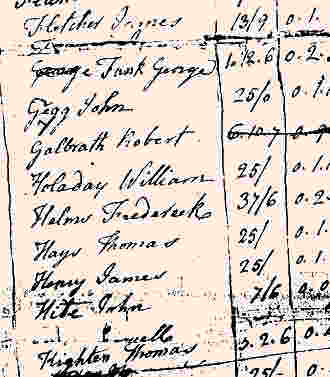 Fletcher James 13/9 0.1.
Funk George 1.12.6 0.2.
Gegg John 25/0 0.1.
Galbrath Robert 6.10.7
Holaday William 25/ 0.1.
Helms Fredereck 37/6 0.2
Hays Thomas 25/ 0.1.
Henry James 25/ 0.1.
Hite John 7/6 0.0
3.2.6 0.
Thomas 25/- 0.